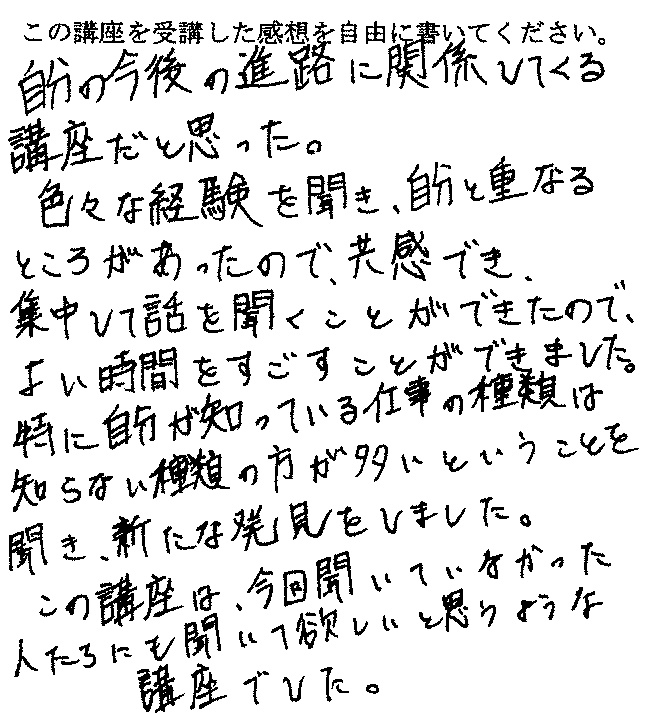 この講座を受講した感想を自由に書いてください。
自分の今後の進路に関係してくる
講座だと思った。
色々な経験を聞き、自分と重なる
ところがあったので、共感でき、
集中して話を聞くことができたので、
よい時間をすごすことができました。
特に自分が知っている仕事の種類は
知らない種類の方が多いということを
聞き、新たな発見をしました。
この講座は、今回聞いていなかった
人たちにも聞いて欲しいと思うような
講座でした。